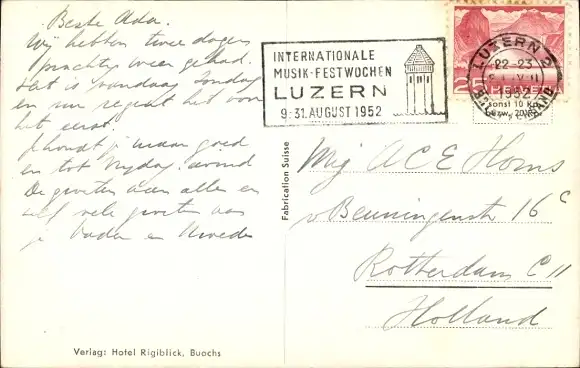 Beste Ada.
Wij hebben twee dagen
prachtig weer gehad.
Het is vandaag Zondag
en nu regent het voor
het eerst.
je maar goed
en tot Vrijdag avond
De groeten aan allen en
zelf vele groeten van
je Vader en Moeder
INTERNATIONALE
MUSIK-FESTWOCHEN
LUZERN
9.-31. AUGUST 1952
LUZERN 2
22-23
1952
HELVETIA
sonst 10 Rp.
bzw. 20 Rp.
Fabrication Suisse
Mej A C E Horns
v Beuningenstr 16 c
Rotterdam C 11
Holland
Verlag: Hotel Rigiblick, Buochs